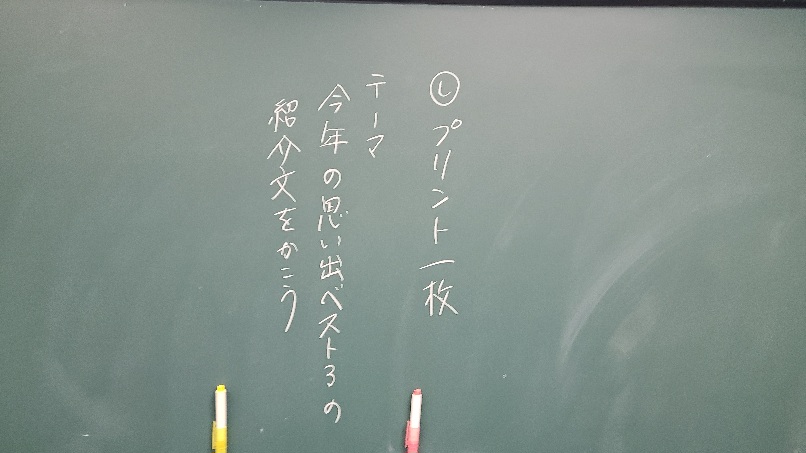 Ⓛプリント一枚
テーマ
今年の思い出ベスト3の
紹介文をかこう